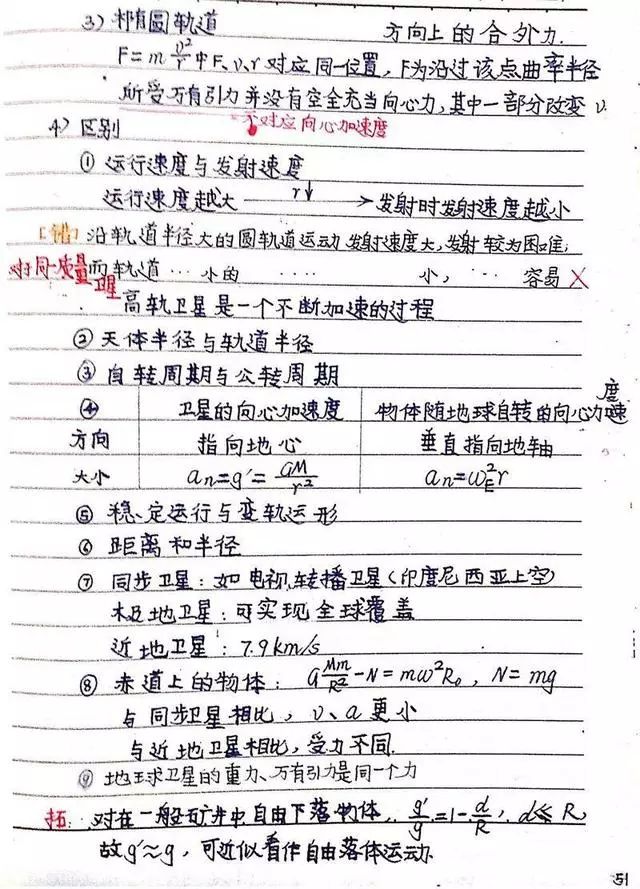 3) 椭圆轨道 方向上的合外力.
F=m v²/r 中F、v、r对应同一位置，F为沿过该点曲率半径
所受万有引力并没有完全充当向心力，其中一部分改变 v
不对应向心加速度
4) 区别
① 运行速度与发射速度
运行速度越大 —r↓→ 发射时发射速度越小
[错] 沿轨道半径大的圆轨道运动发射速度大，发射较为困难，
对于同一质量卫星 而轨道…小的 …… 小，… 容易 ✗
高轨卫星是一个不断加速的过程
② 天体半径与轨道半径
③ 自转周期与公转周期
④ 卫星的向心加速度 物体随地球自转的向心加速度
方向 指向地心 垂直指向地轴
大小 an=g'=GM/r² an=ω²_E r
⑤ 稳定运行与变轨运形
⑥ 距离和半径
⑦ 同步卫星：如电视转播卫星(印度尼西亚上空)
极地卫星：可实现全球覆盖
近地卫星：7.9km/s
⑧ 赤道上的物体：G Mm/R² -N=mω²R₀，N=mg
与同步卫星相比，v、a更小
与近地卫星相比，受力不同.
⑨ 地球卫星的重力、万有引力是同一个力
拓: 对在一般矿井中自由下落物体，g'/g=1-d/R，d≪R，
故g'≈g，可近似看作自由落体运动.
51